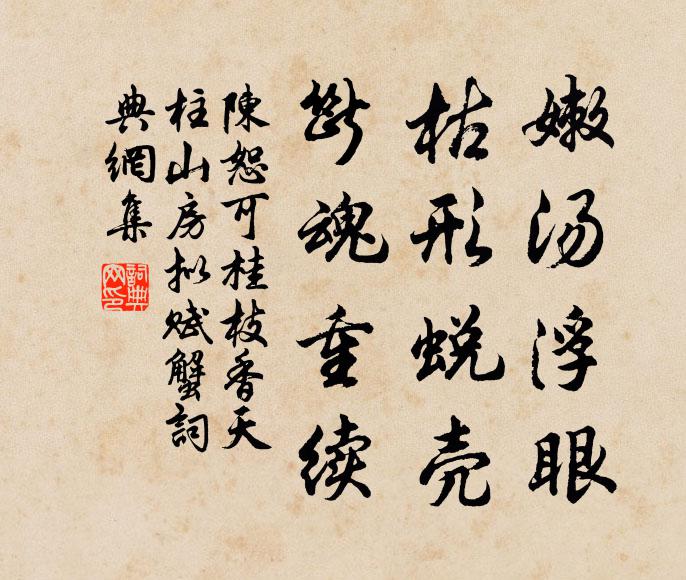 嫩汤浮眼
枯形蜕壳
断魂重续
陳恕可桂枝香天
柱山房拟赋蟹詞
典網集
詞典网印